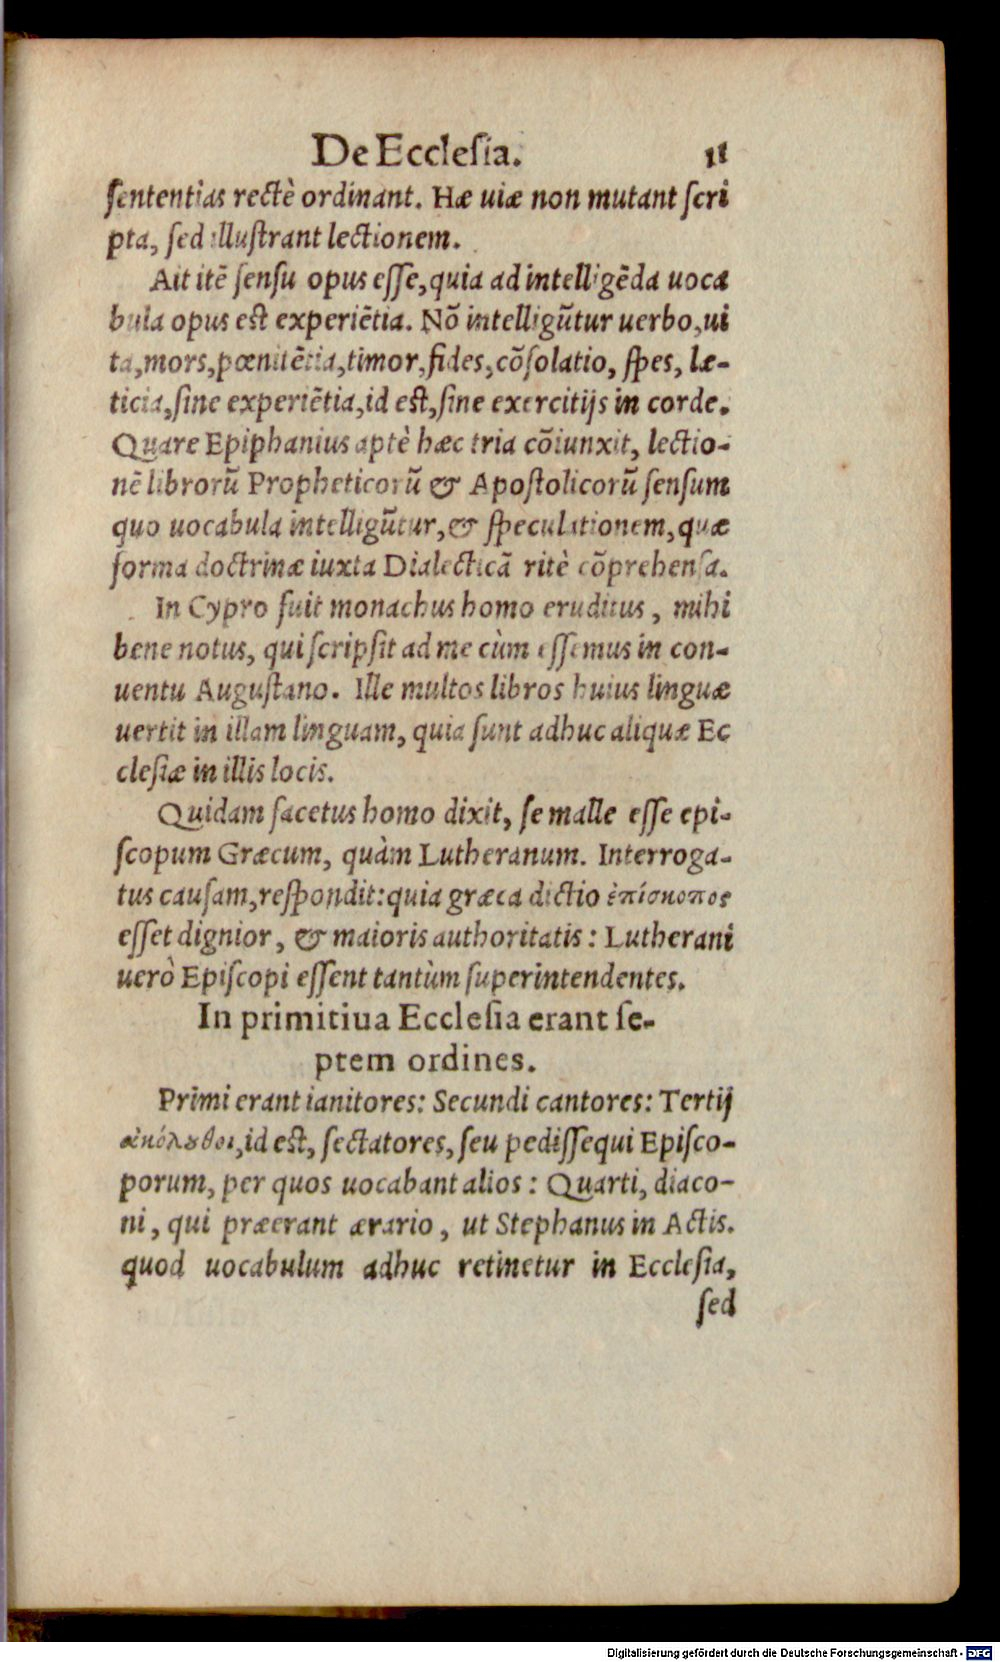 De Ecclesia. 11
sententias rectè ordinant. Hæ uiæ non mutant scri
pta, sed illustrant lectionem.
Ait itē sensu opus esse, quia ad intelligēda uoca
bula opus est experiētia. Nō intelligūtur uerbo, ui
ta, mors, pœnitētia, timor, fides, cōsolatio, spes, læ-
ticia, sine experiētia, id est, sine exercitijs in corde.
Quare Epiphanius aptè hæc tria cōiunxit, lectio-
nē librorū Propheticorū & Apostolicorū sensum
quo uocabula intelligūtur, & speculationem, quæ
forma doctrinæ iuxta Dialecticā ritè cōprehensa.
In Cypro fuit monachus homo eruditus, mihi
bene notus, qui scripsit ad me cùm essemus in con-
uentu Augustano. Ille multos libros huius linguæ
uertit in illam linguam, quia sunt adhuc aliquæ Ec
clesiæ in illis locis.
Quidam facetus homo dixit, se malle esse epi-
scopum Græcum, quàm Lutheranum. Interroga-
tus causam, respondit: quia græca dictio ἐπίσκοπος
esset dignior, & maioris authoritatis: Lutherani
uerò Episcopi essent tantùm superintendentes.
In primitiua Ecclesia erant se-
ptem ordines.
Primi erant ianitores: Secundi cantores: Tertij
ἀκόλουθοι, id est, sectatores, seu pedissequi Episco-
porum, per quos uocabant alios: Quarti, diaco-
ni, qui præerant ærario, ut Stephanus in Actis.
quod uocabulum adhuc retinetur in Ecclesia,
sed
Digitalisierung gefördert durch die Deutsche Forschungsgemeinschaft - DFG